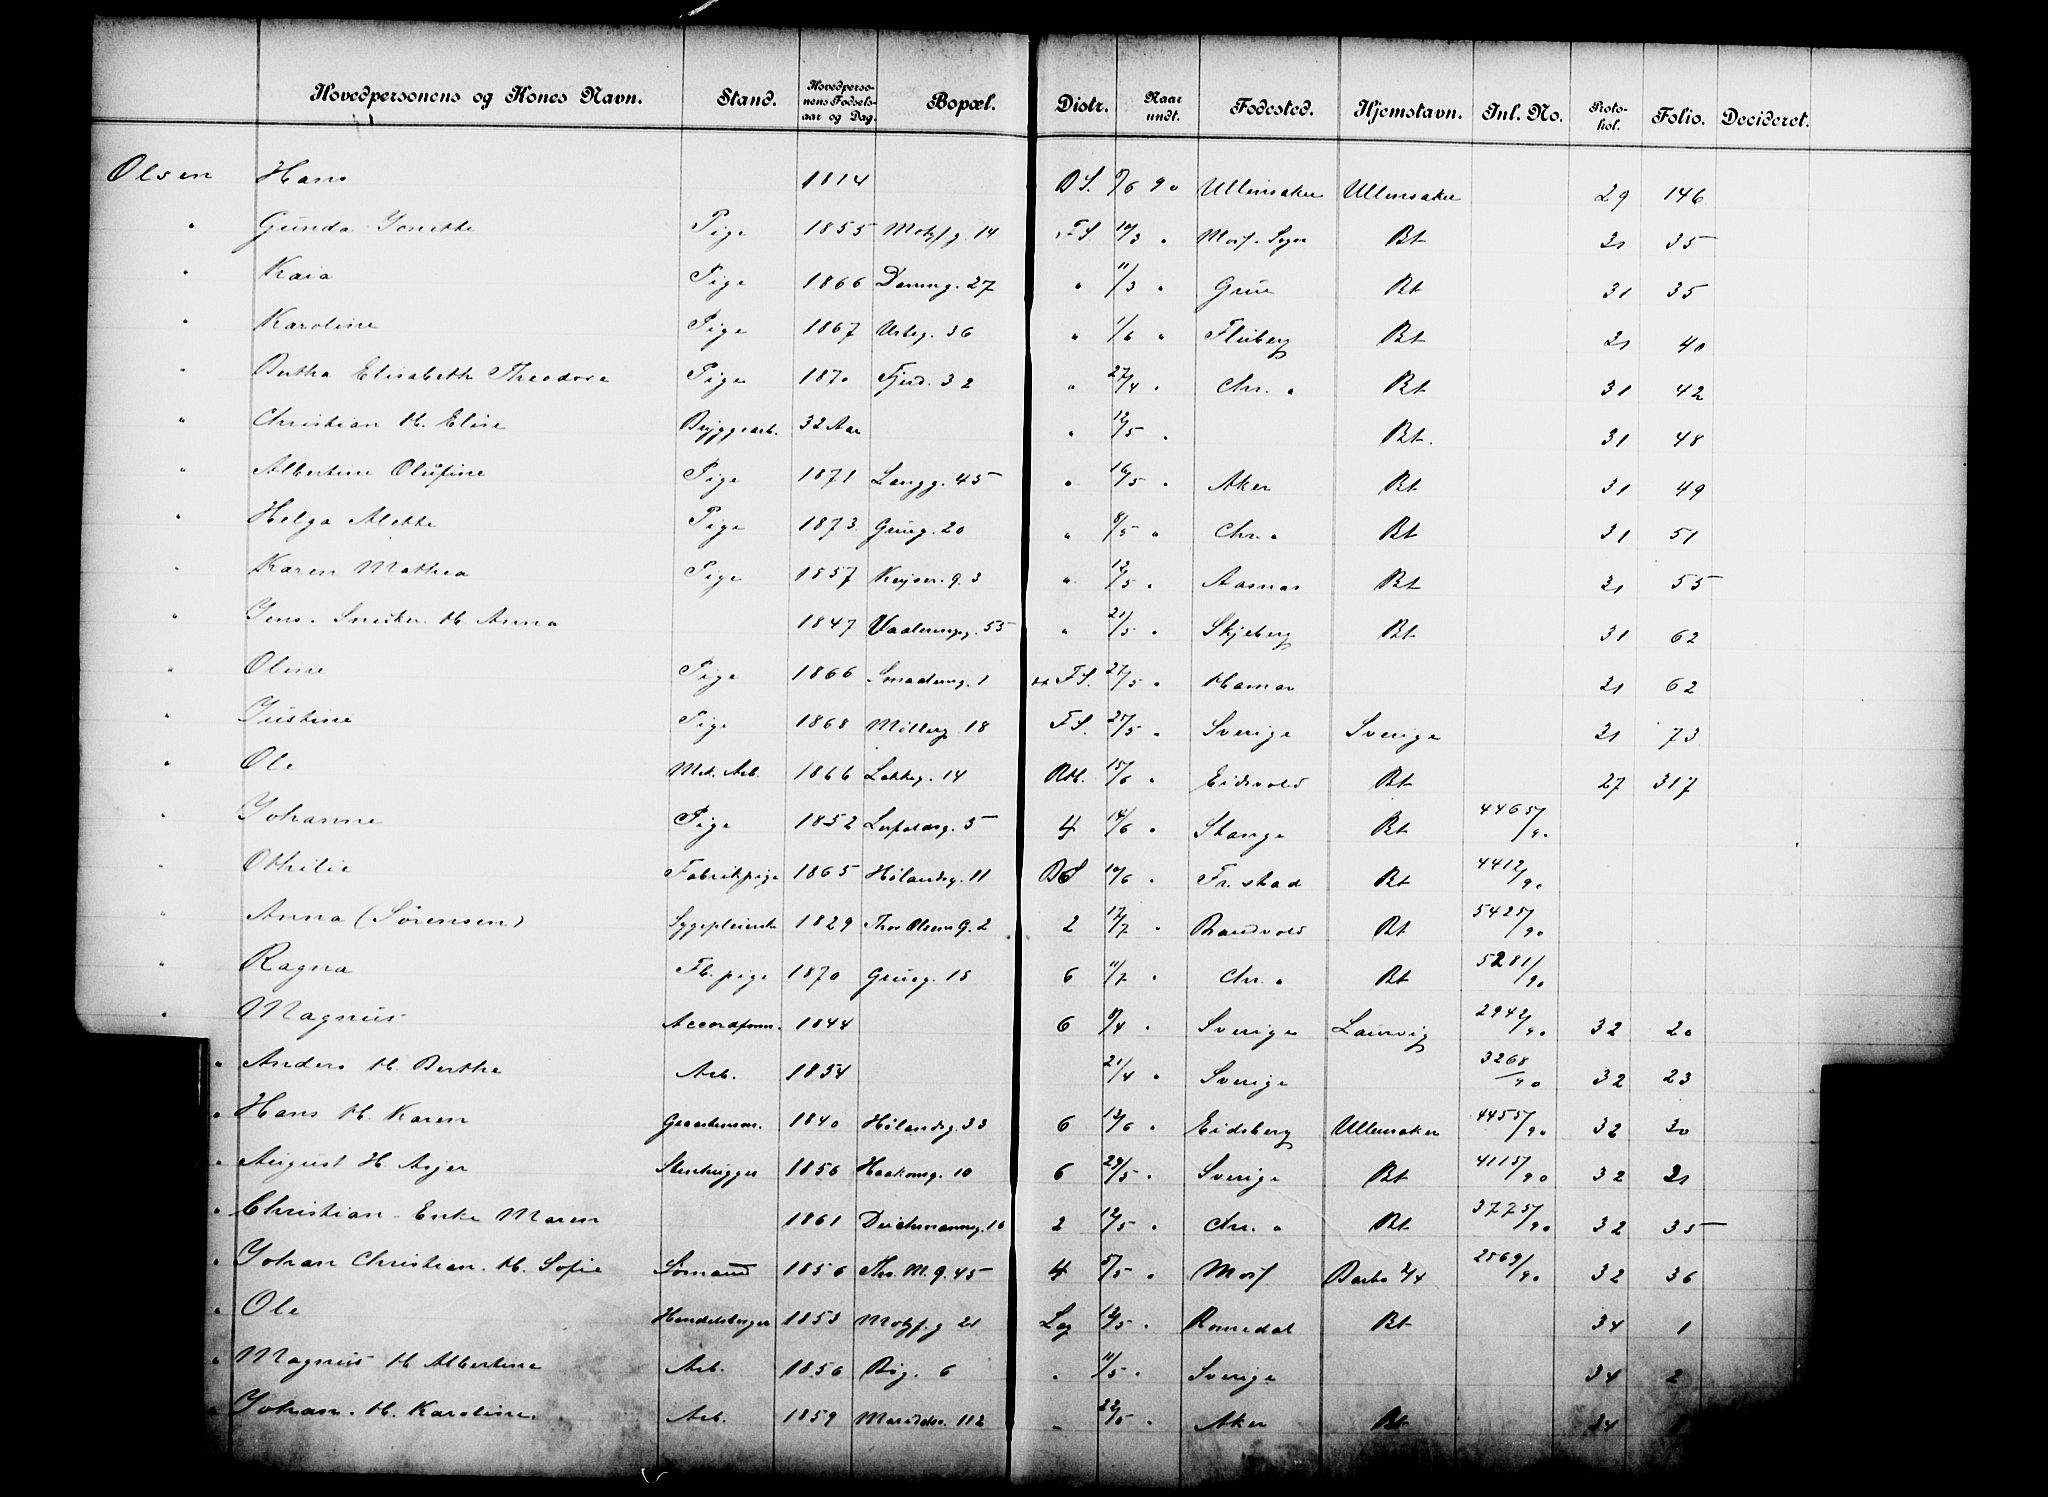 Hovedpersonens og Kones Navn. Stand. Hovedperso-nens Fødsels-aar og Dag. Bopæl. Distr. Naar undt. Fødested. Hjemstavn. Inl. No. Proto-kol. Folio. Decideret.
Olsen Hans 1814 BS. 9/6 90 Ullensaker Ullensaker 29 146
" Gunda Jonette Pige 1855 Motzf.g. 14 FS 10/3 " Bt 31 35
" Kaia Pige 1866 Damng. 27 " 11/3 " Grue Bt 31 35
" Karoline Pige 1867 Urteg. 36 " 1/6 " Fluberg Bt 31 40
" Bertha Elisabeth Theodora Pige 1870 Fjerd. 32 " 27/4 " Chr. a Bt 31 42
" Christian H. Elise Bryggearb. 32 Aar " 12/5 " Bt. 31 48
" Albertine Olufine Pige 1871 Langg. 45 " 16/5 " Aker Bt 31 49
" Helga Alette Pige 1873 Grüng. 20 " 8/5 " Chr. a Bt 31 51
" Karen Mathea Pige 1857 Keyser. g. 3 " 12/5 " Aasnæs Bt 31 55
" Jens. Snedker. H. Anna 1847 Vaalerengg. 55 " 21/5 " Skjeberg Bt 31 62
" Oline Pige 1866 Smaaleng. 1 FS. 27/5 " Hamar 31 62
" Justine Pige 1868 Møllerg. 18 FS. 25/5 " Sverige Sverige 31 73
" Ole Mek. Arb. 1866 Løkkeg. 14 Rth. 15/6 " Eidsvold Bt 27 317
" Johanne Pige 1852 5 4 14/6 " Stange Bt 4465/90
" Othilie Fabrikpige 1865 Hølandsg. 11 BS 10/6 " Fr. stad Bt 4412/90
" Anna (Sørensen) Sygepleierske 1829 Thor Olsens g. 2 2 17/7 " Brandvold Bt 5425/90
" Ragna Fb. pige 1870 Grüng. 18 6 11/7 " Chr. a Bt 5281/90
" Magnus Accordform. 1844 6 8/4 " Sverige Laurvig 2942/90 32 20
" Anders H. Berthe Arb. 1854 21/4 " Sverige 3268/90 32 23
" Hans H. Karen Gaardsmm. 1840 Hølandsg. 33 6 12/6 " Eidsberg Ullensaker 4455/90 32 30
" August H Asjer Stenhugger 1856 Haakonsg. 10 6 29/5 " Sverige Bt 4115/90 32 31
" Christian - Enke Maren 1861 Deichmannsg. 16 2 12/5 " Chr. a Bt 3775/90 32 35
" Johan Christian. H. Sofie Sømand 1856 Thr. M. g. 45 4 5/5 " Moss Barbo 2/4 2569/90 32 36
" Ole Handelsborger 1853 Motzf. g 21 Lag 13/5 " Romedal Bt 34 1
" Magnus H Albertine Arb. 1856 Big. 6 " 11/5 " Sverige 34 2
" Johan. H. Karoline. Arb. 1859 Maridds. 112 " 22/5 " Aker Bt 34